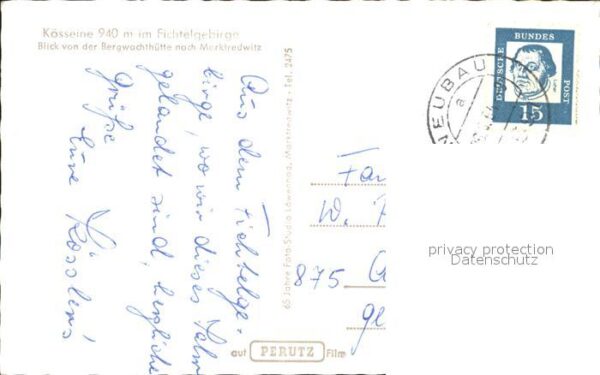 Kösseine 940 m im Fichtelgebirge
Blick von der Bergwachthütte nach Marktredwitz
Aus dem Fichtelge-
birge, wo wir dieses Jahr
gelandet sind, herzliche
Grüße
Eure Kösslers!
65 Jahre Foto-Studio Löwenhag, Marktredwitz · Tel. 2475
auf PERUTZ Film
DEUTSCHE BUNDES POST
15
NEUBAU
a
Fam
W.
875
ge
privacy protection
Datenschutz